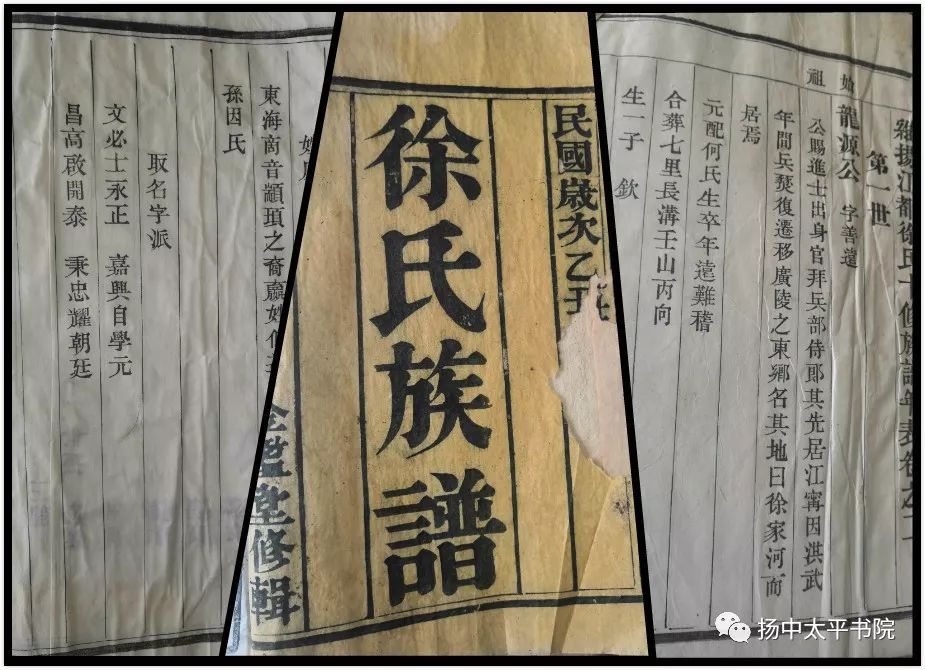 維揚江都徐氏十修族譜年表卷之
第一世
始祖 龍源公 字善
公賜進士出身官拜兵部侍郎其先居江寧因洪武
年間兵燹復遷移廣陵之東鄉名其地曰徐家河而
居焉
元配何氏生卒年遠難稽
合葬七里長溝壬山丙向
生一子 欽
民國歲次乙丑
徐氏族譜
堂修輯
東海商音顓頊之裔嬴姓
孫因氏
取名字派
文必士永正 嘉興自學元
昌高啟開泰 秉忠耀朝廷
扬中太平书院